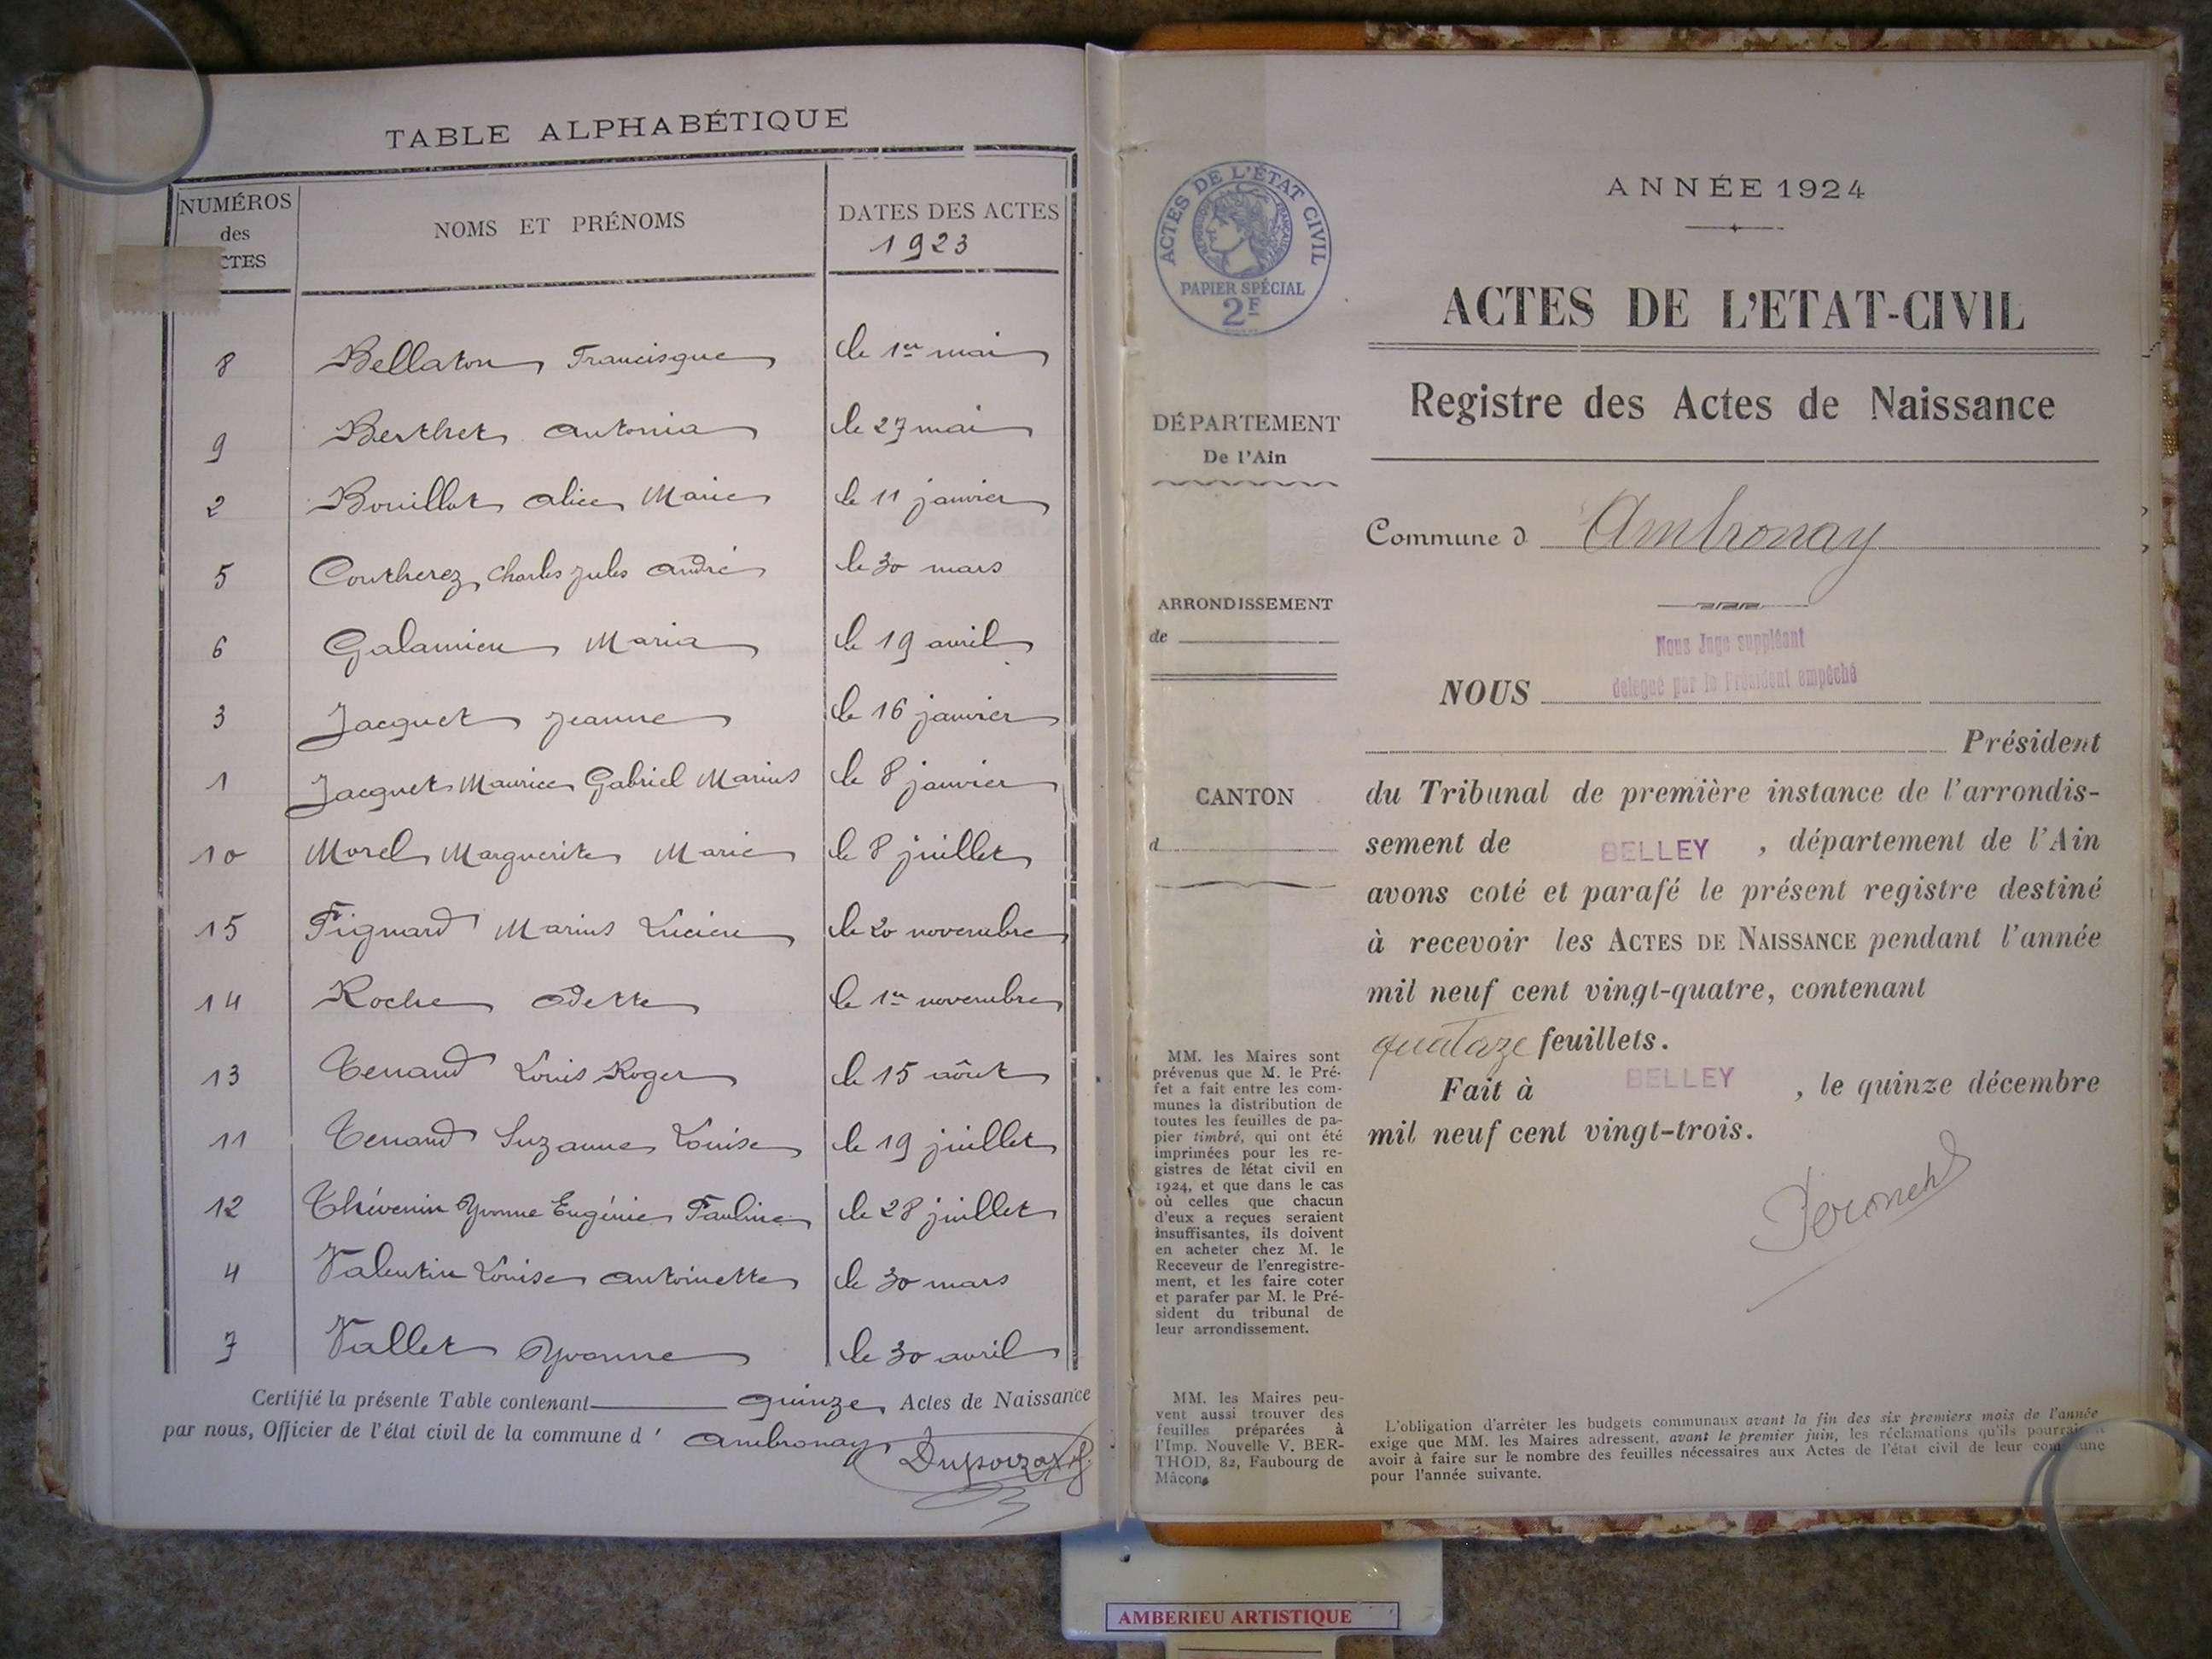 TABLE ALPHABÉTIQUE
NUMÉROS des CTES
NOMS ET PRÉNOMS
DATES DES ACTES 1923
8 Bellaton Francisque le 1er mai
9 Berthet Antonia le 27 mai
2 Bouillot Alice Marie le 11 janvier
5 Coutherez Charles Jules André le 30 mars
6 Galamieu Maria le 19 avril
3 Jacquet Jeanne le 16 janvier
1 Jacquet Maurice Gabriel Marius le 8 janvier
10 Morel Marguerite Marie le 8 juillet
15 Pignard Marius Lucien le 20 novembre
14 Roche Odette le 1er novembre
13 Tenand Louis Roger le 15 août
11 Tenand Suzanne Louise le 19 juillet
12 Thévenin Yvonne Eugénie Pauline le 28 juillet
4 Valentin Louise Antoinette le 30 mars
7 Vallet Yvonne le 30 avril
Certifié la présente Table contenant quinze Actes de Naissance
par nous, Officier de l'état civil de la commune d' Ambronay
ACTES DE L'ÉTAT CIVIL
RÉPUBLIQUE FRANÇAISE
PAPIER SPÉCIAL
2F
DÉPARTEMENT
De l'Ain
ARRONDISSEMENT
de
CANTON
d
MM. les Maires sont
prévenus que M. le Pré-
fet a fait entre les com-
munes la distribution de
toutes les feuilles de pa-
pier timbré, qui ont été
imprimées pour les re-
gistres de létat civil en
1924, et que dans le cas
où celles que chacun
d'eux a reçues seraient
insuffisantes, ils doivent
en acheter chez M. le
Receveur de l'enregistre-
ment, et les faire coter
et parafer par M. le Pré-
sident du tribunal de
leur arrondissement.
MM. les Maires peu-
vent aussi trouver des
feuilles préparées à
l'Imp. Nouvelle V. BER-
THOD, 82, Faubourg de
Mâcon.
ANNÉE 1924
ACTES DE L'ETAT-CIVIL
Registre des Actes de Naissance
Commune d Ambronay
Nous Juge suppléant
NOUS délégué par le Président empêché
Président
du Tribunal de première instance de l'arrondis-
sement de BELLEY , département de l'Ain
avons coté et parafé le présent registre destiné
à recevoir les ACTES DE NAISSANCE pendant l'année
mil neuf cent vingt-quatre, contenant
quatorze feuillets.
Fait à BELLEY , le quinze décembre
mil neuf cent vingt-trois.
L'obligation d'arrêter les budgets communaux avant la fin des six premiers mois de l'année
exige que MM. les Maires adressent, avant le premier juin, les réclamations qu'ils pourraient
avoir à faire sur le nombre des feuilles nécessaires aux Actes de l'état civil de leur commune
pour l'année suivante.
AMBERIEU ARTISTIQUE